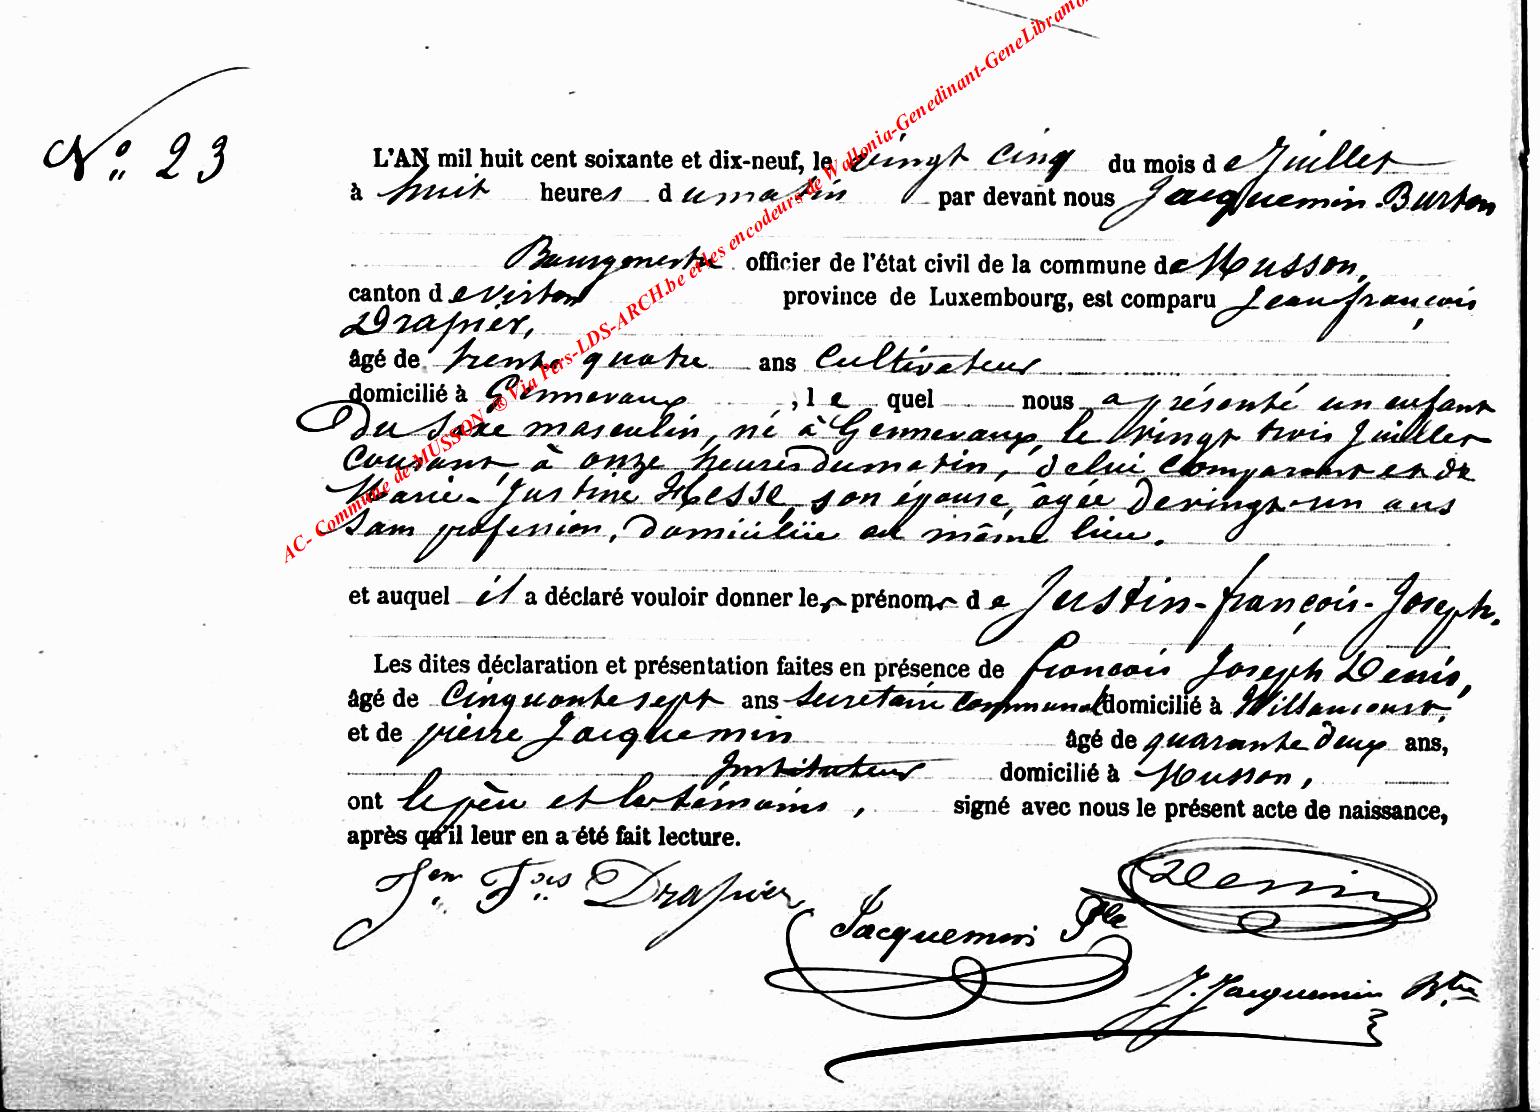 N° 23
L'AN mil huit cent soixante et dix-neuf, le vingt cinq du mois de Juillet
à huit heures du matin par devant nous Jacquemin-Burton
Bourgmestre officier de l'état civil de la commune de Musson,
canton de Virton province de Luxembourg, est comparu Jean françois
Drapier,
âgé de trente quatre ans cultivateur
domicilié à Gennevaux, le quel nous a présenté un enfant
du sexe masculin, né à Gennevaux, le vingt trois Juillet
courant, à onze heures du matin, de lui comparant et de
Marie-Justine Hesse, son épouse, âgée de vingt-un ans
sans profession, domiciliée au même lieu.
et auquel il a déclaré vouloir donner les prénoms de Justin-françois-Joseph.
Les dites déclaration et présentation faites en présence de françois Joseph Denis,
âgé de cinquante sept ans secrétaire communal domicilié à Willancourt,
et de pierre Jacquemin âgé de quarante deux ans,
Instituteur domicilié à Musson,
ont le père et les témoins, signé avec nous le présent acte de naissance,
après qu'il leur en a été fait lecture.
Jean Fois Drapier
Denis
Jacquemin Pre
J. Jacquemin Btn
AC- Commune de MUSSON ®Via Pers-LDS-ARCH.be et les encodeurs de Wallonia-Genedinant-GeneLibramo